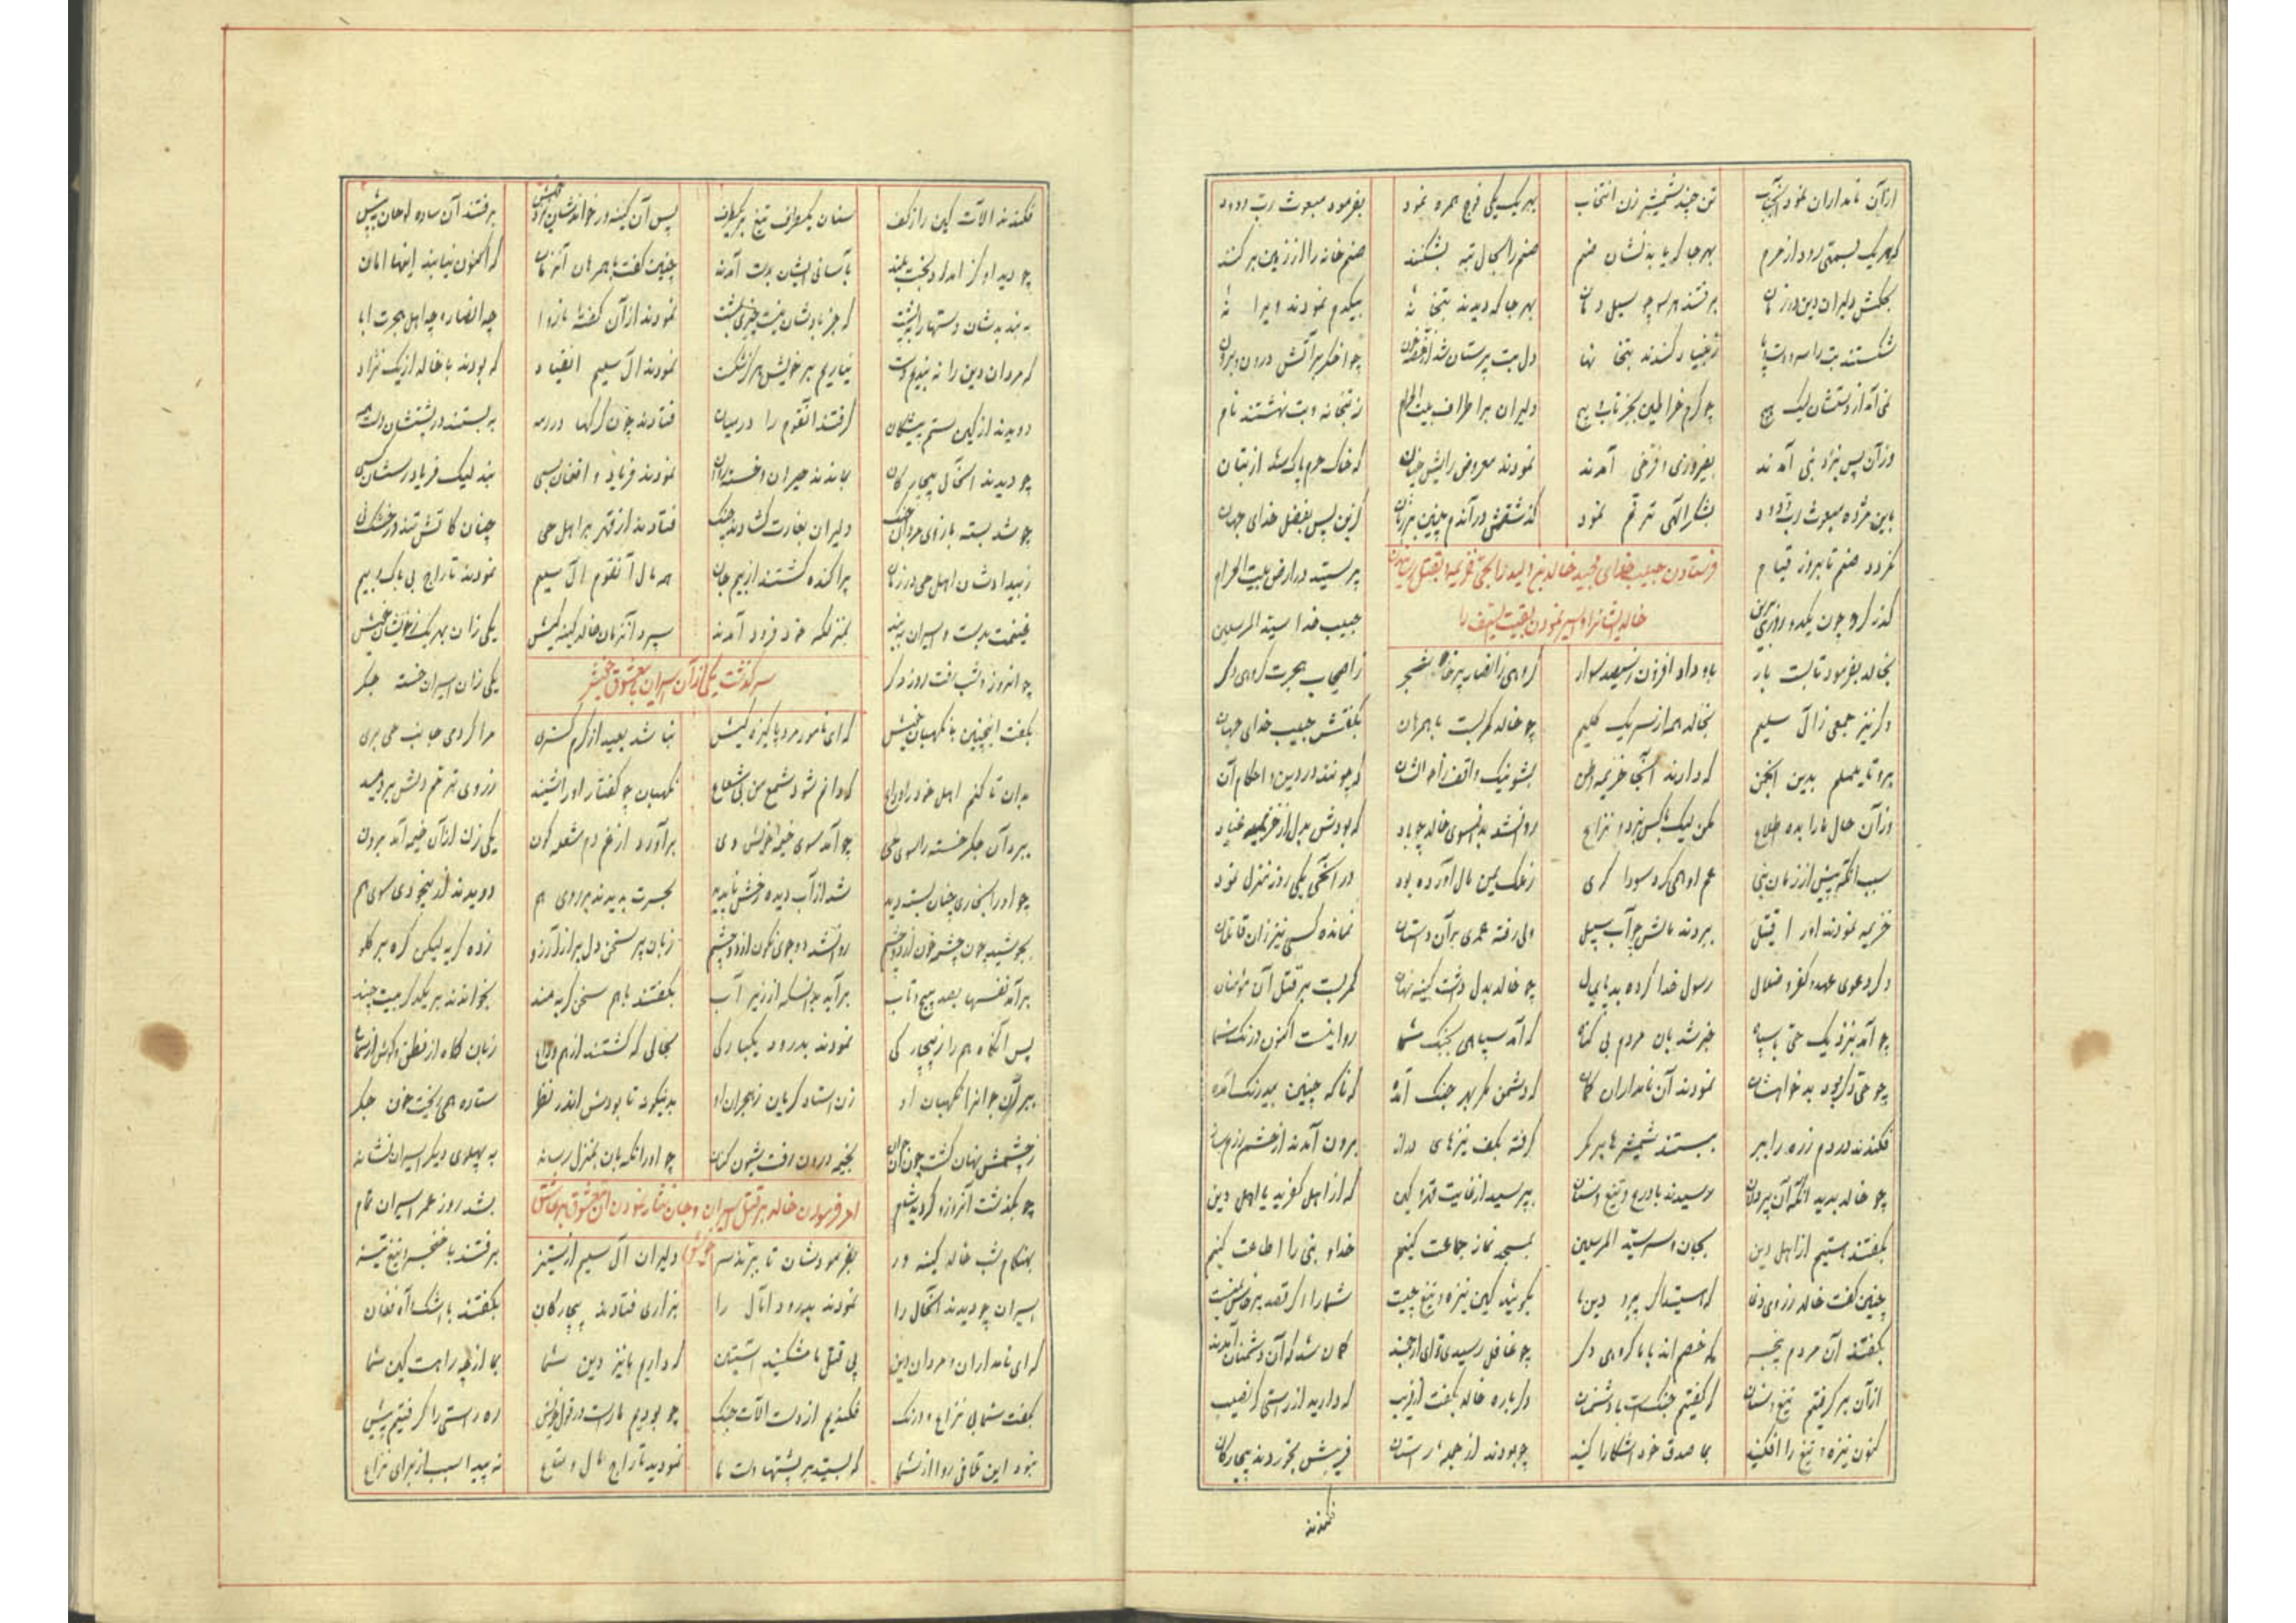 ازآن نامداران نمود آنجناب تن چند شمشیر زن انتخاب بهر یک یکی فوج همره نمود بفرمود مبعوث رب ودود
که هر یک بسمتی رود از حرم بهر جا که یابد نشان صنم صنم را بحال تبه بشکنند صنم خانه را از زمین بر کنند
بحکمش دلیران دین در زمان برفتند هر سو چو سیل دمان بهر جا که دیدند بتخانهٔ بیکدم نمودند ویرانهٔ
شکستند بت را سر و دست و پا ز بنیاد کندند بتخانها دل بت پرستان شد از غصه خون چو اخگر پر آتش درون و برون
نمی آمد از دستشان لیک هیچ چو کرم خراطین بجز تاب و پیچ دلیران بر اطراف بیت الحرام ز بتخانه و بت نهشتند نام
وزآن پس بنزد نبی آمدند بفیروزی و فرخی آمدند نمودند معروض رایش چنان که خاک حرم پاک شد از بتان
باین مژده مبعوث رب ودود بشکر الهی ترنم نمود گذشتش در آندم چنین بر زبان کزین پس بفضل خدای جهان
نگردد صنم تا بروز قیام پرستیده در ارض بیت الحرام
فرستادن حبیب خدای مجید خالد بن ولید را بحی خزیمه و بقتل رسانیدن
خالد ایشانرا و اسیر نمودن بقیت السیف را
گذر کرد چون یکدو روزی برین حبیب خدا سید المرسلین
بخالد بفرمود تا بست بار باو داد افزون ز سیصد سوار گروهی ز انصار پرخاشجر ز اصحاب هجرت گروهی دگر
دگر نیز جمعی ز آل سلیم بخاله همه از سر یک گلیم چو خالد کمر بست با همرهان بگفتش حبیب خدای جهان
برو تا یململم بدین انجمن که دارند آنجا خزیمه وطن بشو نیک واقف ز احوالشان که چونند در دین و احکام آن
وزآن حال ما را بده اطلاع مکن لیک با کس نبرد و نزاع روان شد بدانسوی خالد چو باد که بودش بدل از خزیمه عناد
سبب آنکه پیش از زمان نبی عم او همی کرد سوداگری ز ملک یمن مال آورده بود در آن حی یکی روز منزل نمود
خزیمه نمودند او را قتیل ببردند مالش چو آب سبیل ولی رفته عمری بر آن داستان نمانده کسی نیز زان قاتلان
دگر دعوی عهد کفر و ضلال رسول خدا کرده بد پایمال چو خالد بدل داشت کینه نهان کمر بست بر قتل آن مؤمنان
چو آمد بنزدیک حی با سپاه خبر شد بآن مردم بی گناه که آمد سپاهی بجنگ شما روا نیست اکنون درنگ شما
چو حی دگر بود بدخواهشان نمودند آن نامداران گمان که دشمن مگر بهر جنگ آمده که ناگه چنین بیدرنگ آمده
فکندند در دم زره را ببر ببستند شمشیرها بر کمر گرفته بکف نیزهای دراز برون آمدند از حشم رزم ساز
چو خالد بدید آنکه آن پردلان رسیدند با درع و تیغ و سنان بپرسید از غایت قهر و کین که از اهل کفرید یا اهل دین
بگفتند هستیم از اهل دین بجان و سر سید المرسلین بمسجد نماز جماعت کنیم خدا و نبی را اطاعت کنیم
چنین گفت خالد ز روی دغا که استید اگر پیرو دین ما بگوئید کین نیزه و تیغ چیست شما را اگر قصد پرخاش نیست
بگفتند آن مردم بیخبر که خصم اند با ما گروهی دگر چو غافل رسیدی تو ای ارجمند گمان شد که آن دشمنان آمدند
ازآن بر گرفتیم تیغ و سنان که گفتیم جنگ است با دشمنان دگر باره خالد بگفت از فریب که دارید از راستی گر نصیب
کنون نیزه و تیغ را افکنید بما صدق خود آشکارا کنید چو بودند از جمله راستان فریبش بخوردند بیچارگان
فکندند
فکندند آلات کین را ز کف سنان یکطرف تیغ بر یکطرف پس آن کینه ور خواندشان نزد خویش برفتند آن ساده لوحان به پیش
چو دید او کز امداد بخت بلند بآسانی ایشان بدست آمدند چنین گفت با همرهان آنزمان که اکنون نیابند اینها امان
به بندیدشان دستها را به پشت که جز بادشان نیست چیزی بمشت نمودند از آن گفته بازو ابا چه انصار و چه اهل هجرت ابا
که مردان دین را نه بندیم دست نیاریم بر خویش هرگز شکست نمودند آل سلیم انقیاد که بودند با خاله از یک نژاد
دویدند از کین ستم پیشگان گرفتند آنقوم را در میان فتادند چون گرگها در رمه به بستند در پشتشان دست همه
چو دیدند آنحال بیچارگان بماندند حیران و خسته روان نمودند فریاد و افغان بسی نبد لیک فریاد رسشان کسی
چو شد بسته بازوی مردان جنگ دلیران بغارت گشادند چنگ فتادند از قهر بر اهل حی چنان کاتش تند در خشک نی
ز بیدادشان اهل حی در زمان پراکنده گشتند از بیم جان همه مال آنقوم آل سلیم نمودند تاراج بی باک و بیم
غنیمت بدست و اسیران به بند بمنزلگه خود فرود آمدند سپرد آنزمان خالد کینه کیش یکی زان بهر یک ز خویشان خویش
سرگذشت یکی از آن اسیران با معشوق خویش
چو آنروز و شب رفت روز دگر یکی زان اسیران خسته جگر
بگفت اینچنین با نگهبان خویش که ای نامور مرد پاکیزه کیش نباشد بعید از کرم گستری مرا گر دمی جانب حی بری
بدان تا کنم اهل خود را وداع که دانم شود شمع من بی شعاع نگهبان چو گفتار او را شنید ز روی ترحم دلش بردمید
ببرد آن جگر خسته را سوی حی چو آمد سوی خیمه خویش وی برآورد از غم دم شعله گون یکی زن از آن خیمه آمد برون
چو او را بخواری چنان بسته دید شد از آب دیده رخش ناپدید بحسرت بدیدند بر روی هم دویدند از بیخودی سوی هم
بجوشید چون چشمه خون از دو چشم روان شد دو جوی نگون از دو چشم زبان پر سخن دل پر از آرزو زده گریه لیکن گره بر گلو
برآمد نفسها بصد پیچ و تاب برآید بدانسانکه از زیر آب بگفتند با هم سخن گریه مند بخواندند بر یکدگر بیت چند
پس آنگاه هم را ز بیچارگی نمودند بدرود یکبارگی بحالی که گشتند از هم وداع زبان کاه از نطق و گوش از سماع
ببرد آن جوانرا نگهبان او زن استاد گریان ز هجران او بدینگونه تا بودش اندر نظر ستاده همی ریخت خون جگر
ز چشمش نهان گشت چون آن جوان بخیمه درون رفت شیون کنان چو او را نگهبان بمنزل رساند به پهلوی دیگر اسیران نشاند
امر فرمودن خالد بر قتل اسیران و جان نثار نمودن آن معشوق بر عاشق خویش
چو بگذشت آنروز و گردید شام بشد روز عمر اسیران تمام
بهنگام شب خالد کینه ور بفرمودشان تا ببرند سر دلیران آل سلیم از ستیز برفتند با خنجر و تیغ تیز
اسیران چو دیدند آنحال را نمودند بدرود آمال را بزاری فتادند بیچارگان بگفتند با اشک و آه و فغان
که ای نامداران و مردان دین پی قتل ما مشکنید آستین که داریم ما نیز دین شما بما از چه راهست کین شما
بگفت شما بی نزاع و درنگ فکندیم از دست آلات جنگ چو بودیم ما راست در قول خویش ره راستی را گرفتیم پیش
نبود این تلافی روا از شما که بستید بر پشتها دست ما نمودید تاراج مال و متاع نه پیدا سبب از برای نزاع